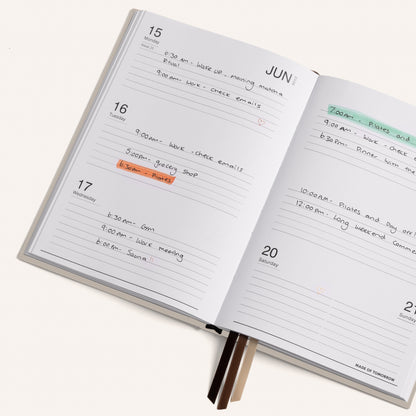 15
Monday
JUN
6:30 AM - Wake up - morning matcha
Ritual
9:00 AM - Work - check emails
16
Tuesday
9:00AM - Work - check emails
5:00PM - grocery shop
6:30AM - Pilates
17
Wednesday
6:30AM - Gym
9:00AM - Work meeting
6:00AM - Sauna
7:00AM - Pilates and
9:00AM - Work - check
6:30PM - Dinner with the
10:00AM - Pilates and Day off!
12:00PM - Long weekend comme
20
Saturday
21
Sunday
MADE OF TOMORROW